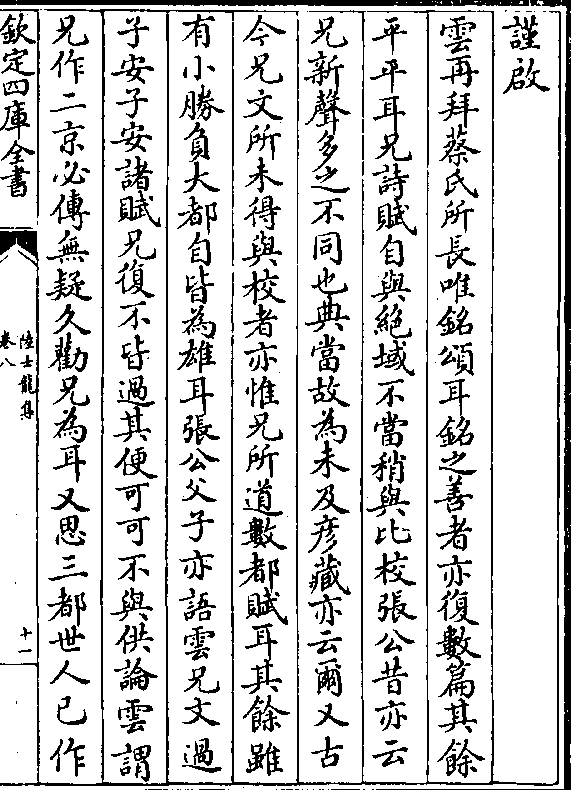 謹啟
雲再拜蔡氏所長唯銘頌耳銘之善者亦復數篇其餘
平平耳兄詩賦自與絕域不當稍與比校張公昔亦云
兄新聲多之不同也典當故為未及彥藏亦云爾又古
今兄文所未得與校者亦惟兄所道數都賦耳其餘雖
有小勝負大都自皆為雄耳張公父子亦語雲兄文過
子安子安諸賦兄復不皆過其便可可不與供論雲謂
兄作二京必傳無疑久勸兄為耳又思三都世人已作
欽定四庫全書
陸士龍集
卷八
十一